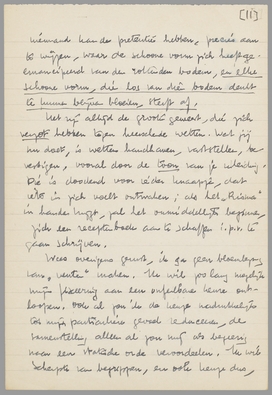 [11]
niemand kan de pretentie hebben, precies aan
te wijzen, waar de schoone vorm zich heeft ge-
emancipeerd van de rottenden bodem, en elke
schoone vorm, die los van dien bodem denkt
te kunnen blijven bloeien, sterft af.
Het zijn altijd de grooten geweest, die zich
vergist hebben tegen heerschende wetten. Wat jij
nu doet, is wetten handhaven, vaststellen, be-
vestigen, vooral door de toon van je inleiding.
Die is doodend voor ieder knaapje, dat
iets in zich voelt ontwaken; als hij "Prisma"
in handen krijgt, zal het onmiddellijk beginnen,
zich een receptenboek aan te schaffen i.p.v. te
gaan schrijven.
Wees overigens gerust, ik ga geen bloemlezing
van "vente" maken. Ik wil zoo lang mogelijk
mijn fixeering aan een onfeilbare keuze ont-
loopen. Ook al zou ik de keuze
tot mijn particuliere geval reduceeren, de
samenstelling alleen al zou mij als begeerig
naar een statische orde veroordeelen. Ik wil
scherpte van begrippen, en ook keuze dus,